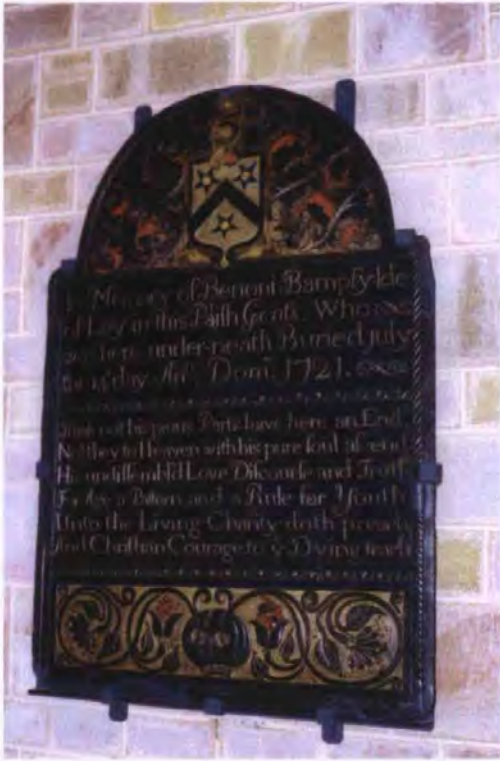 In Memory of Benoni Bampfylde
of Lay in this Parish Gent. Who was
here under-neath Buried July
the day An° Dom: 1721.
not his pious Parts have here an End
No they to Heaven with his pure soul ascend
His undissembl'd Love Discourse and Truth
For Age a Pattern and a Rule for Youth
Unto the Living Charity doth preach
And Christian Courage to ye Dying teach